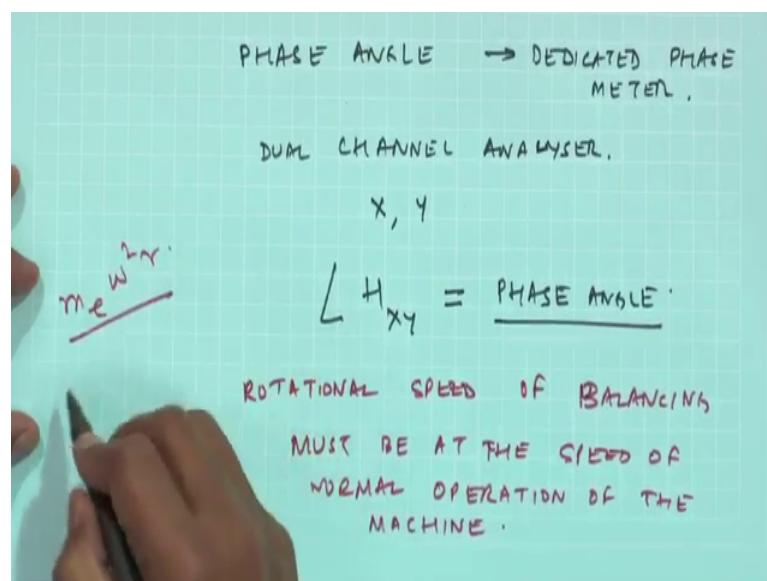 PHASE ANGLE → DEDICATED PHASE
METER.
DUAL CHANNEL ANALYSER.
X, Y
∠ H_XY = PHASE ANGLE.
m_e ω²r.
ROTATIONAL SPEED OF BALANCING
MUST BE AT THE SPEED OF
NORMAL OPERATION OF THE
MACHINE.